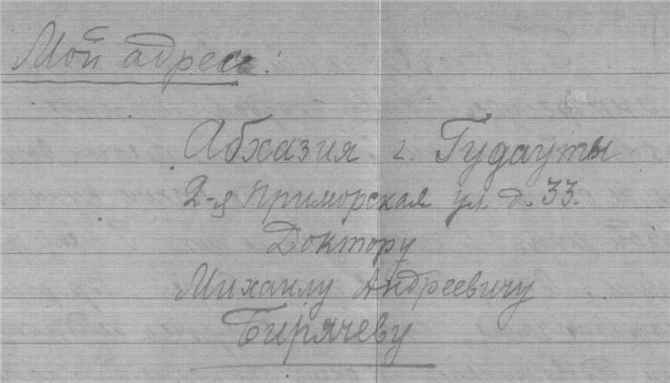 Мой адрес:
Абхазия г. Гудауты
2-я Приморская ул. д. 33.
Доктору
Михаилу Андреевичу
Бирячеву